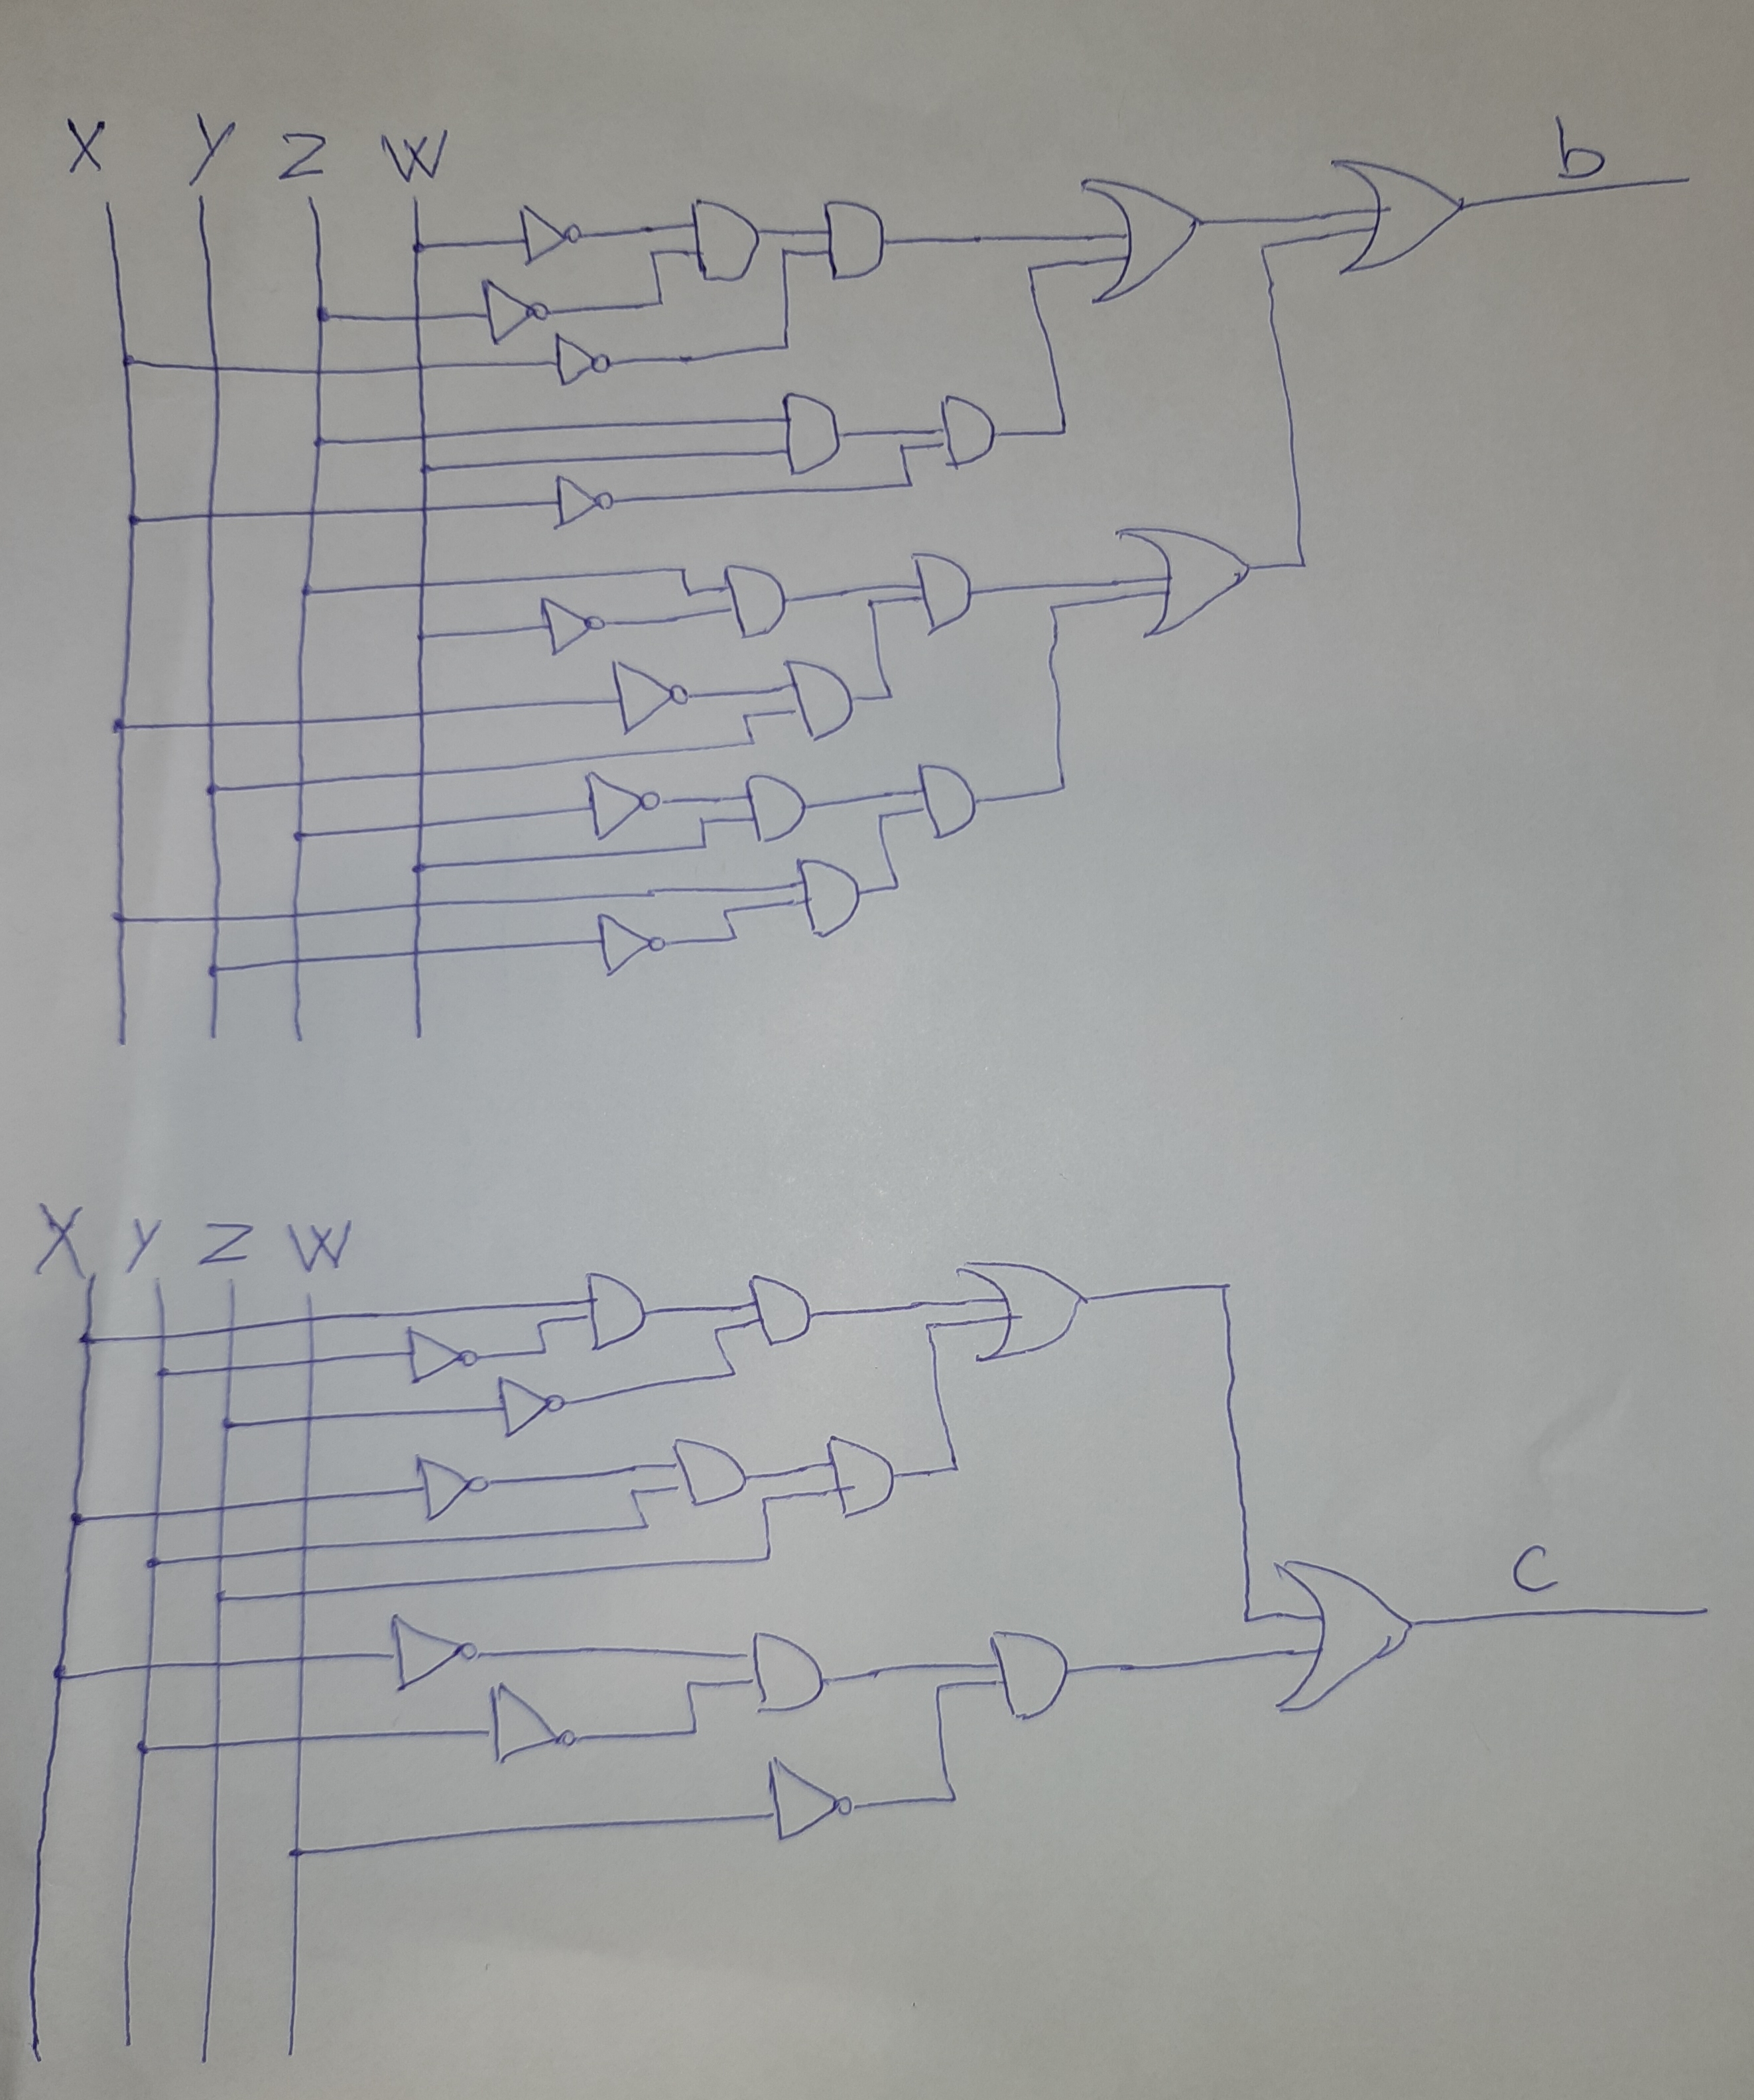 X Y Z W
b
X Y Z W
C